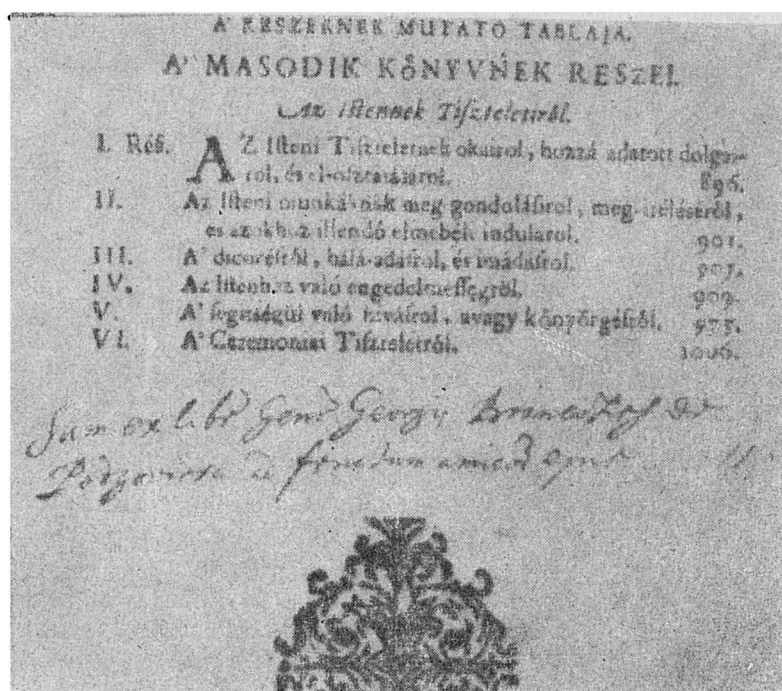 A' RESZEKNEK MUTATO TABLAJA.
A' MASODIK KŐNYVNEK RESZEI.
Az Istennek Tiszteletiről.
I. Rés. AZ Isteni Tiszteletnek okairol, hozzá adatott dolga-
rol, és el-osztásárol. 896.
II. Az Isteni munkáknak meg gondolásirol, meg-itéléséről,
és azokhoz illendő elmebéli indularol. 901.
III. A' dicséretről, hálá-adásrol, és imádásrol. 907.
IV. Az Istenhez való engedelmességről. 909.
V. A' segitségűl való hivásrol, avagy kőnyőrgésről. 975.
VI. A' Ceremoniai Tiszteletről. 1006.
Sum ex libr Georgy de
amicor